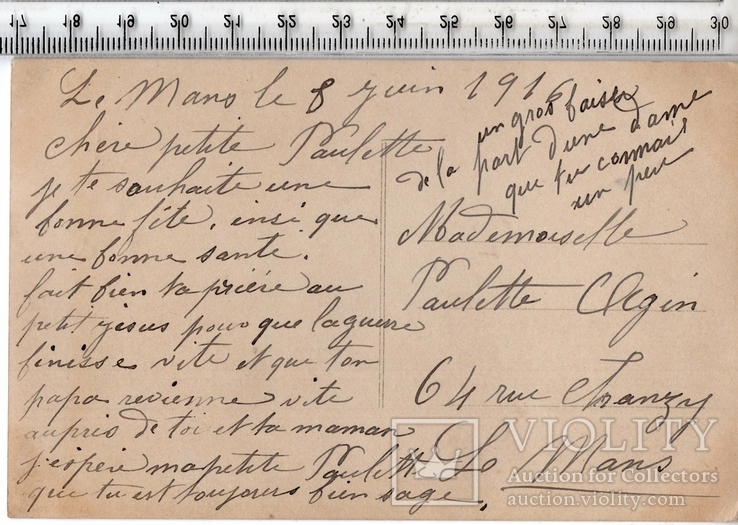 17 18 19 20 21 22 23 24 25 26 27 28 29 30
Le Mans le 8 juin 1916
Chère petite Paulette
je te souhaite une
bonne fête, insi que
une bonne santé.
fait bien ta prière au
petit jésus pour que la guerre
finisse vite et que ton
papa revienne vite
auprès de toi et ta maman
j'espère ma petite Paulette
que tu est toujours bien sage.
un gros baiser
de la part d'une dame
que tu connais
un peu
Mademoiselle
Paulette Agin
64 rue Chanzy
Le Mans
VIOLITY
Auction for Collectors
auction.violity.com